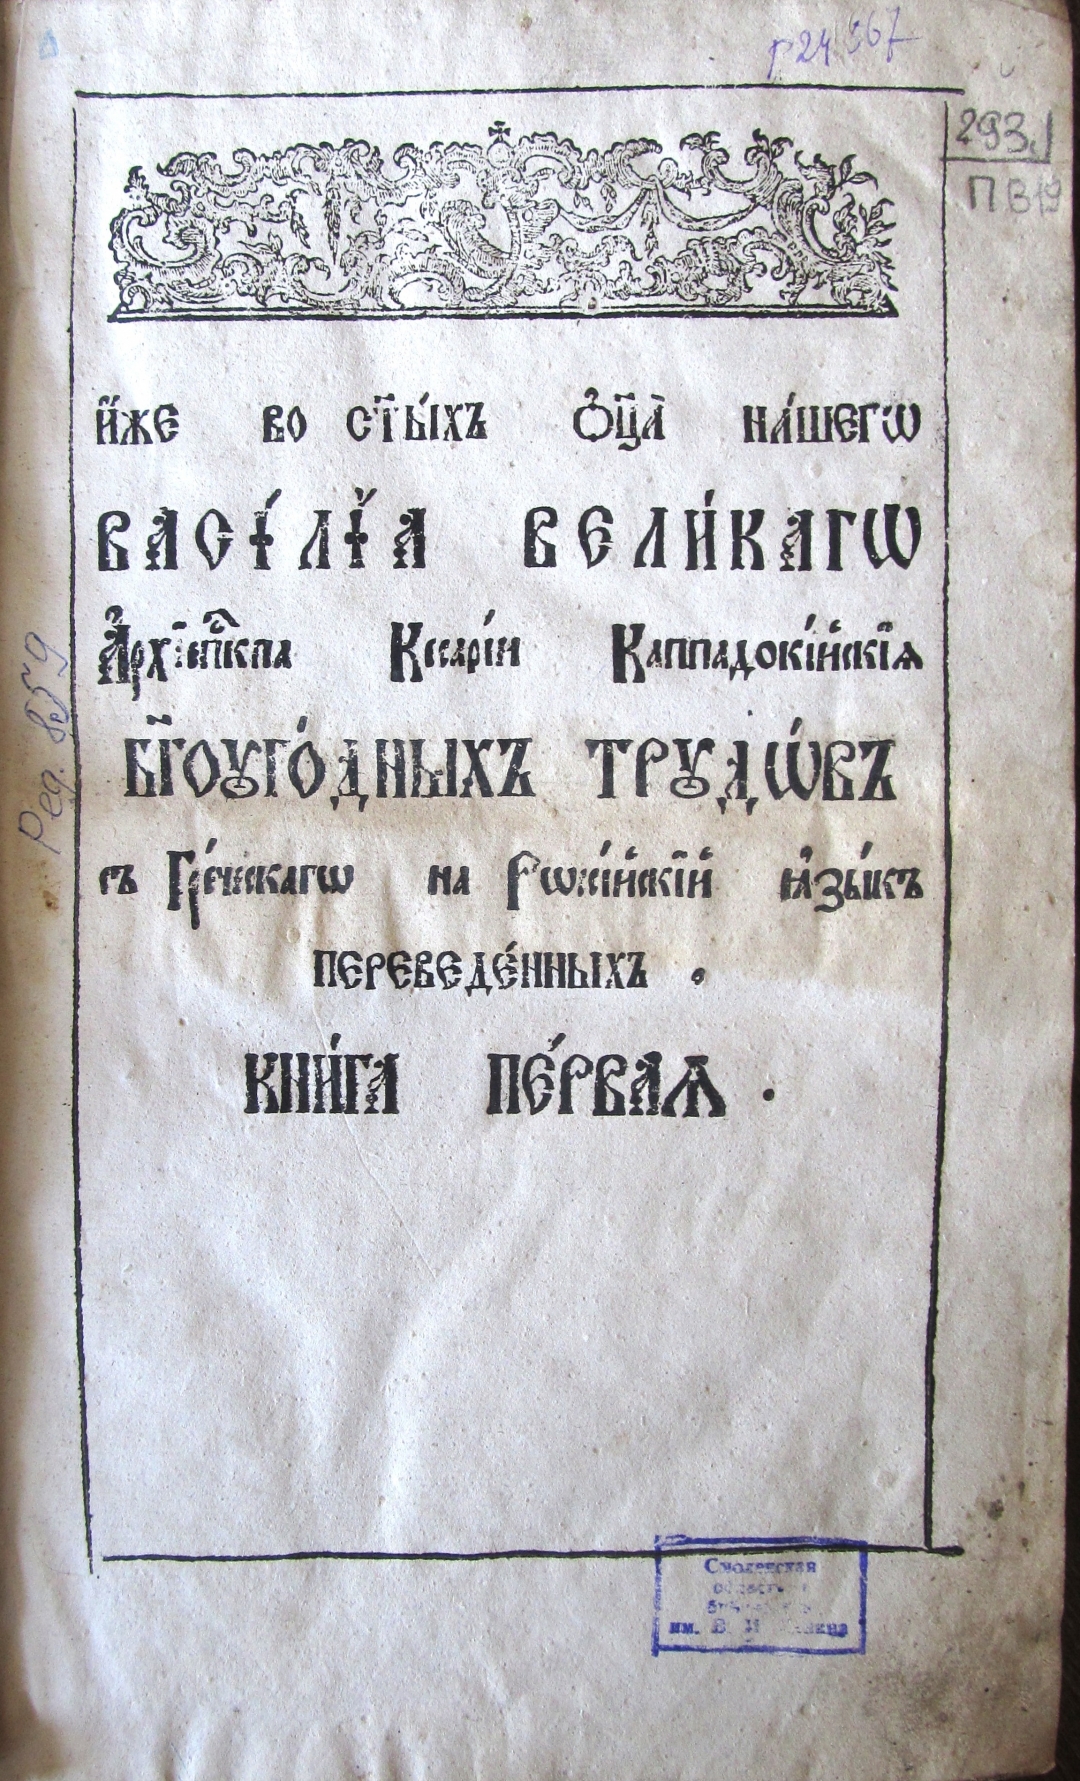 р24367
293.1
ПВ19
и҆́же во ст҃ы́хъ ѻ҆ц҃а̀ на́шегѡ
васі́лїа вели́кагѡ
А҆рхїепⷭ҇кпа Кесарі́и Каппадокі́йскїѧ
бг҃оуго́дныхъ трꙋдѡ́въ
съ Гре́ческагѡ на Рѡссі́йскїй ꙗ҆зы́къ
переведе́нныхъ .
кни́га пе́рваѧ .
Ред. 859
Смоленская
областная
библиотека
им. В. И. Ленина